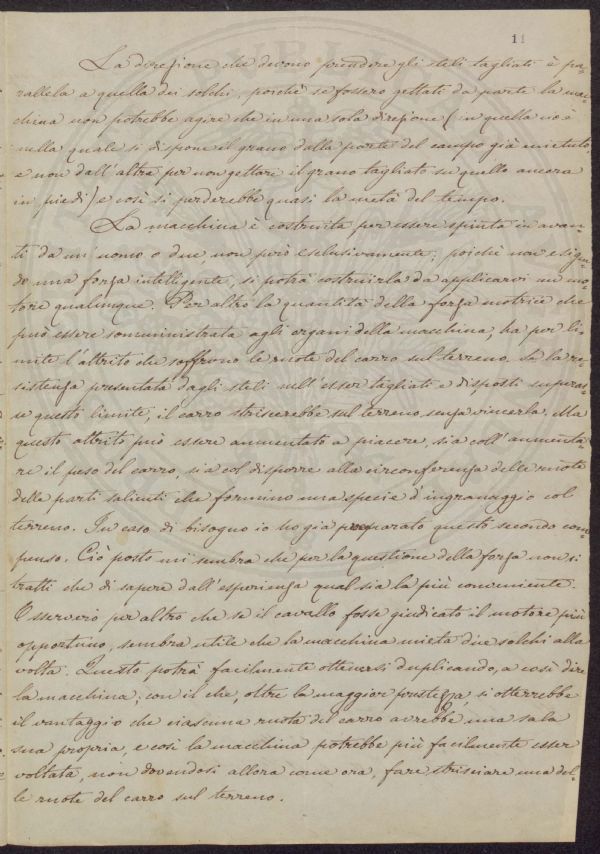 11
La direzione che devono prendere gli steli tagliati è pa-
rallela a quella dei solchi, poichè se fossero gettati da parte la mac-
china non potrebbe agire che in una sola direzione (in quella cioè
nella quale si dispone il grano dalla parte del campo già mietuto,
e non dall'altra per non gettare il grano tagliato su quello ancora
in piedi) e così si perderebbe quasi la metà del tempo.
La macchina è costruita per essere spinta in avan-
ti da un'uomo o due, non però esclusivamente; poichè non esigen-
do una forza intelligente, si potrà costruirla da applicarvi un mo-
tore qualunque. Per altro la quantità della forza motrice che
può essere somministrata agli organi della macchina, ha per li-
mite l'attrito che soffrono le ruote del carro sul terreno. Se la re-
sistenza presentata dagli steli nell'esser tagliati e disposti superas-
se questo limite, il carro striscerebbe sul terreno senza vincerla. Ma
questo attrito può essere aumentato a piacere, sia coll'aumenta-
re il peso del carro, sia col disporre alla circonferenza delle ruote
delle parti salienti che formino una specie d'ingranaggio col
terreno. In caso di bisogno io ho già preparato questo secondo com-
penso. Ciò posto mi sembra che per la questione della forza non si
tratti che di sapere dall'esperienza qual sia la più conveniente.
Osserverò per altro che se il cavallo fosse giudicato il motore più
opportuno, sembra utile che la macchina mieta due solchi alla
volta. Questo potrà facilmente ottenersi duplicando, a così dire
la macchina; con il che, oltre la maggior prestezza, si otterrebbe
il vantaggio che ciascuna ruota del carro avrebbe una sala
sua propria, e così la macchina potrebbe più facilmente esser
voltata, non dovendosi allora come ora, fare strisciare una del-
le ruote del carro sul terreno.